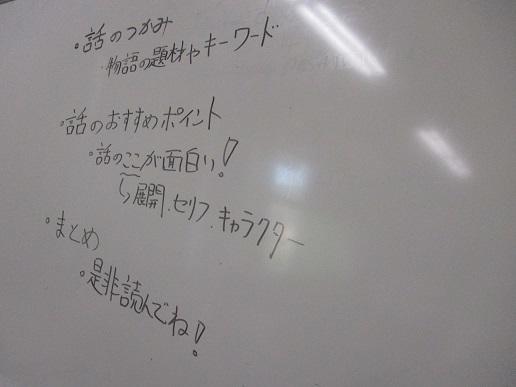 ・話のつかみ
・物語の題材やキーワード
・話のおすすめポイント
・話のここが面白い!
↳展開、セリフ、キャラクター
・まとめ
・是非読んでね!